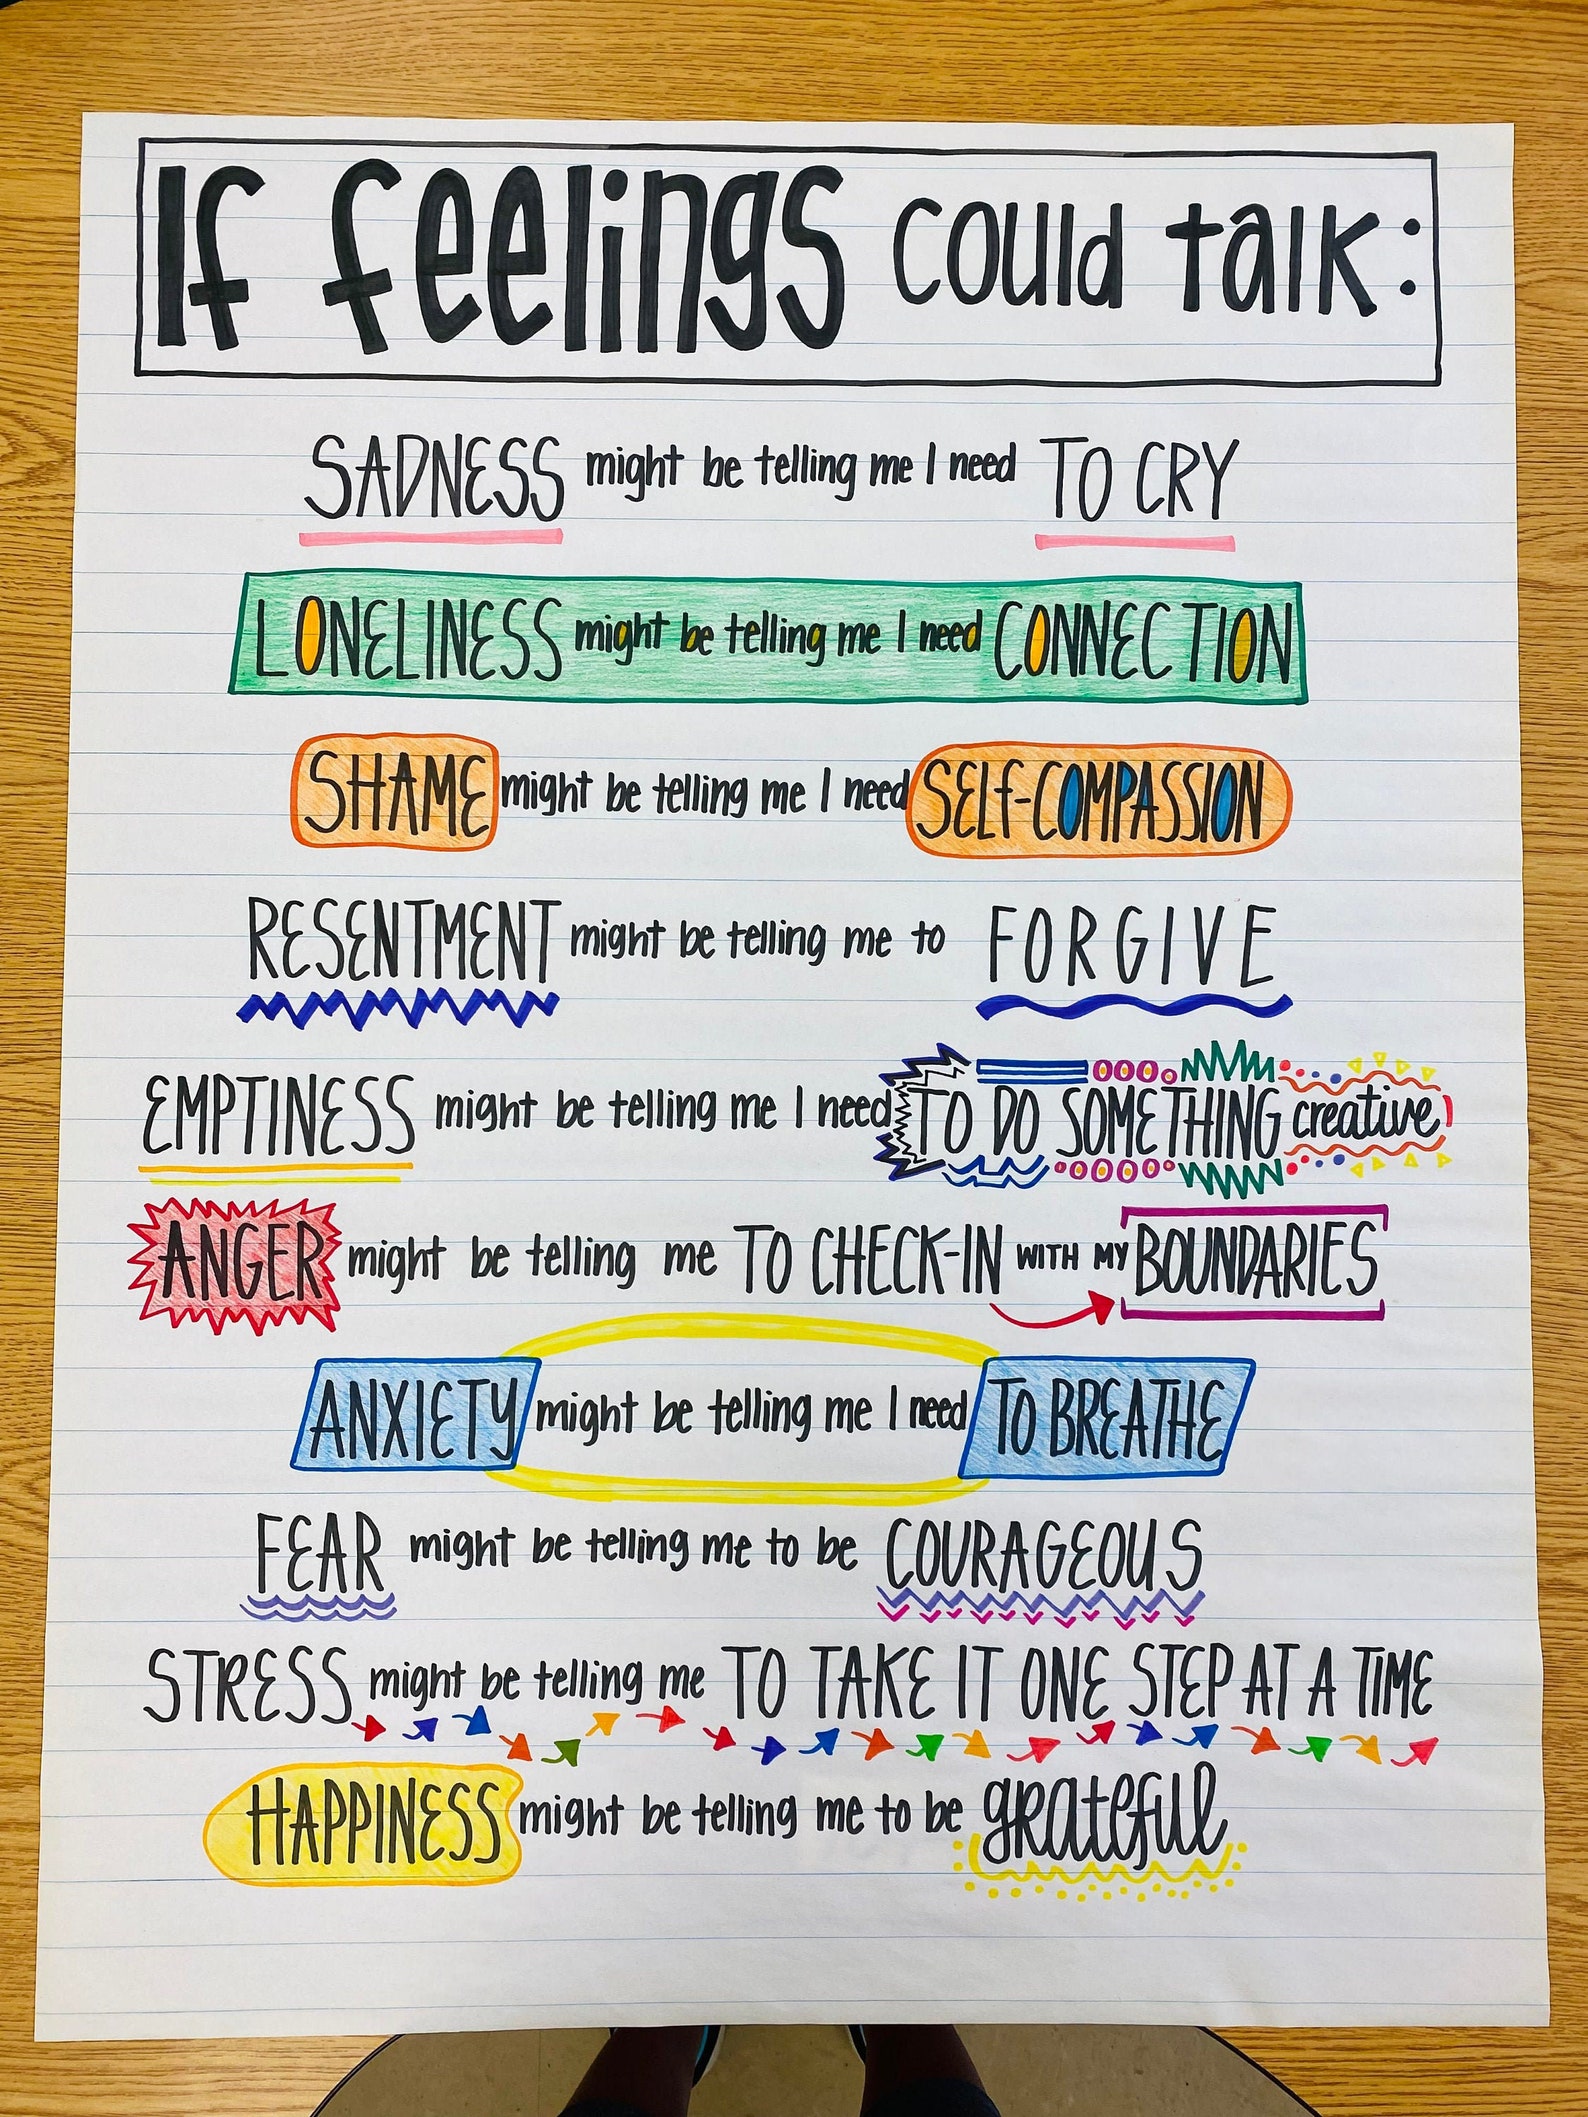 If feelings could talk:
SADNESS might be telling me I need TO CRY
LONELINESS might be telling me I need CONNECTION
SHAME might be telling me I need SELF-COMPASSION
RESENTMENT might be telling me to FORGIVE
EMPTINESS might be telling me I need TO DO SOMETHING creative
ANGER might be telling me TO CHECK-IN WITH MY BOUNDARIES
ANXIETY might be telling me I need TO BREATHE
FEAR might be telling me to be COURAGEOUS
STRESS might be telling me TO TAKE IT ONE STEP AT A TIME
HAPPINESS might be telling me to be grateful